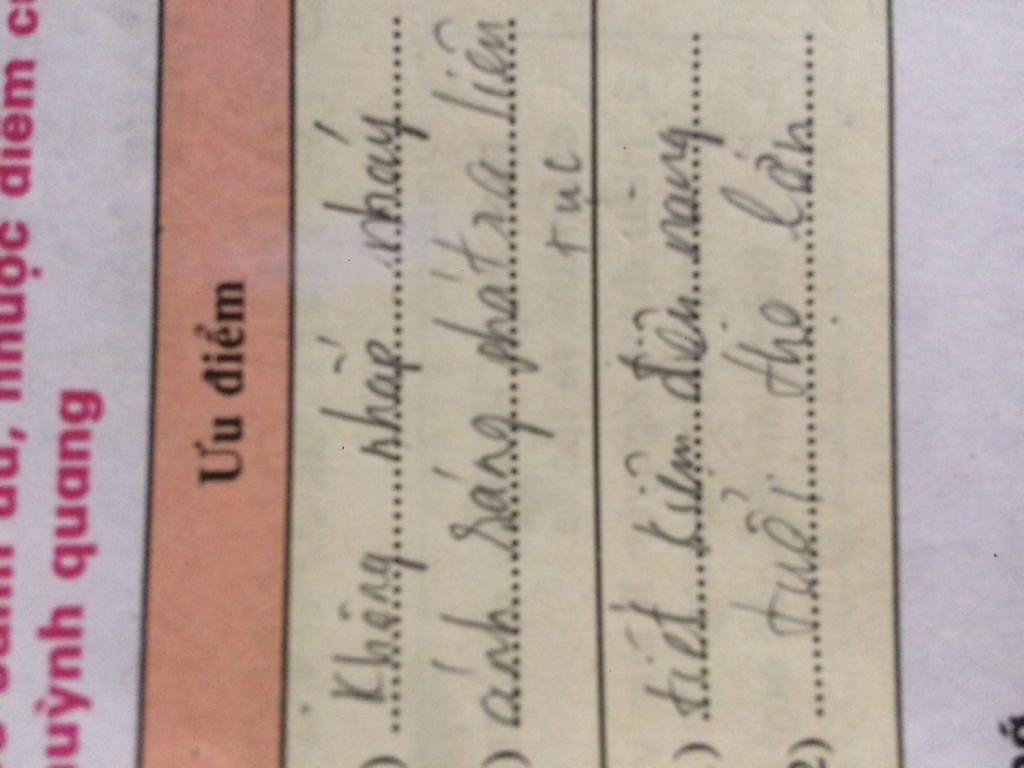 nhược điểm
huỳnh quang
Ưu điểm
) Không nhấp nháy
) ánh sáng phát ra liên
tục
) tiết kiệm điện năng
2) tuổi thọ lớn